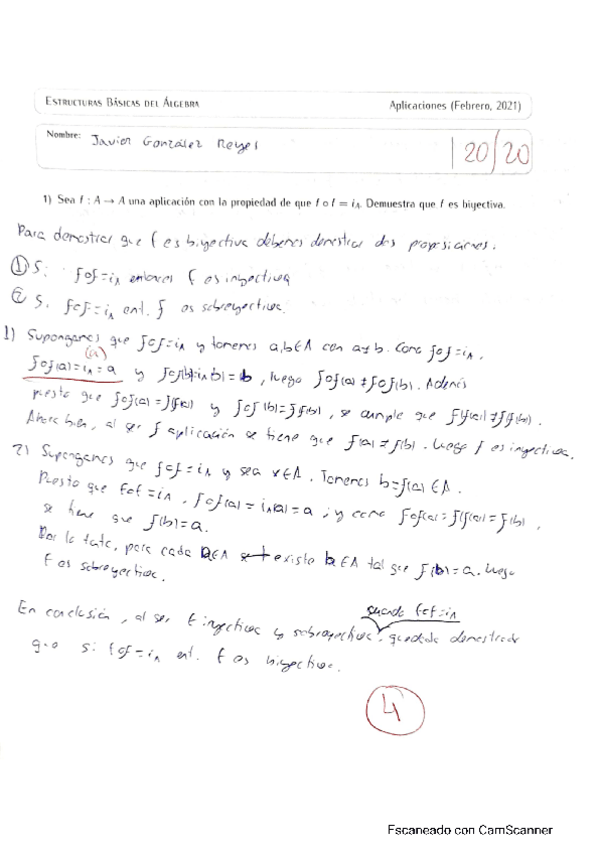 ESTRUCTURAS BÁSICAS DEL ÁLGEBRA Aplicaciones (Febrero, 2021)
Nombre: Javier González Reyes 20/20
1) Sea f : A → A una aplicación con la propiedad de que f o f = i_A. Demuestra que f es biyectiva.
Para demostrar que f es biyectiva debemos demostrar dos proposiciones.
① Si fof=i_A entonces f es inyectiva
② Si fof=i_A ent. f es sobreyectiva.
1) Supongamos que fof=i_A y tomemos a,b∈A con a≠b. Como fof=i_A,
(a)
fof(a)=i_A=a y fof(b)=i_A(b)=b, luego fof(a)≠fof(b). Además
puesto que fof(a)=f(f(a)) y fof(b)=f(f(b)), se cumple que f(f(a))≠f(f(b)).
Ahora bien, al ser f aplicación se tiene que f(a)≠f(b). Luego f es inyectiva.
2) Supongamos que fof=i_A y sea x∈A. Tomemos b=f(a)∈A.
Puesto que fof=i_A, fof(a)=i_A(a)=a, y como fof(a)=f(f(a))=f(b),
se tiene que f(b)=a.
Por lo tanto, para cada a∈A existe b∈A tal que f(b)=a. Luego
f es sobreyectiva.
siendo fof=i_A
En conclusión, al ser f inyectiva y sobreyectiva, queda demostrado
que si fof=i_A ent. f es biyectiva.
4
Escaneado con CamScanner